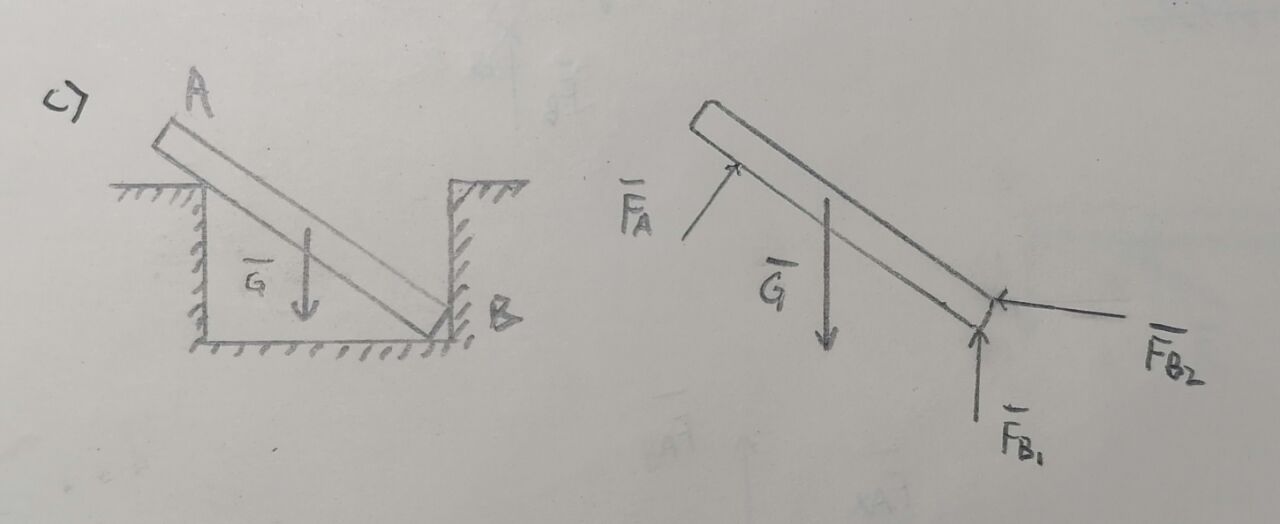 c)
A
G̅
B
F̅A
G̅
F̅B2
F̅B1